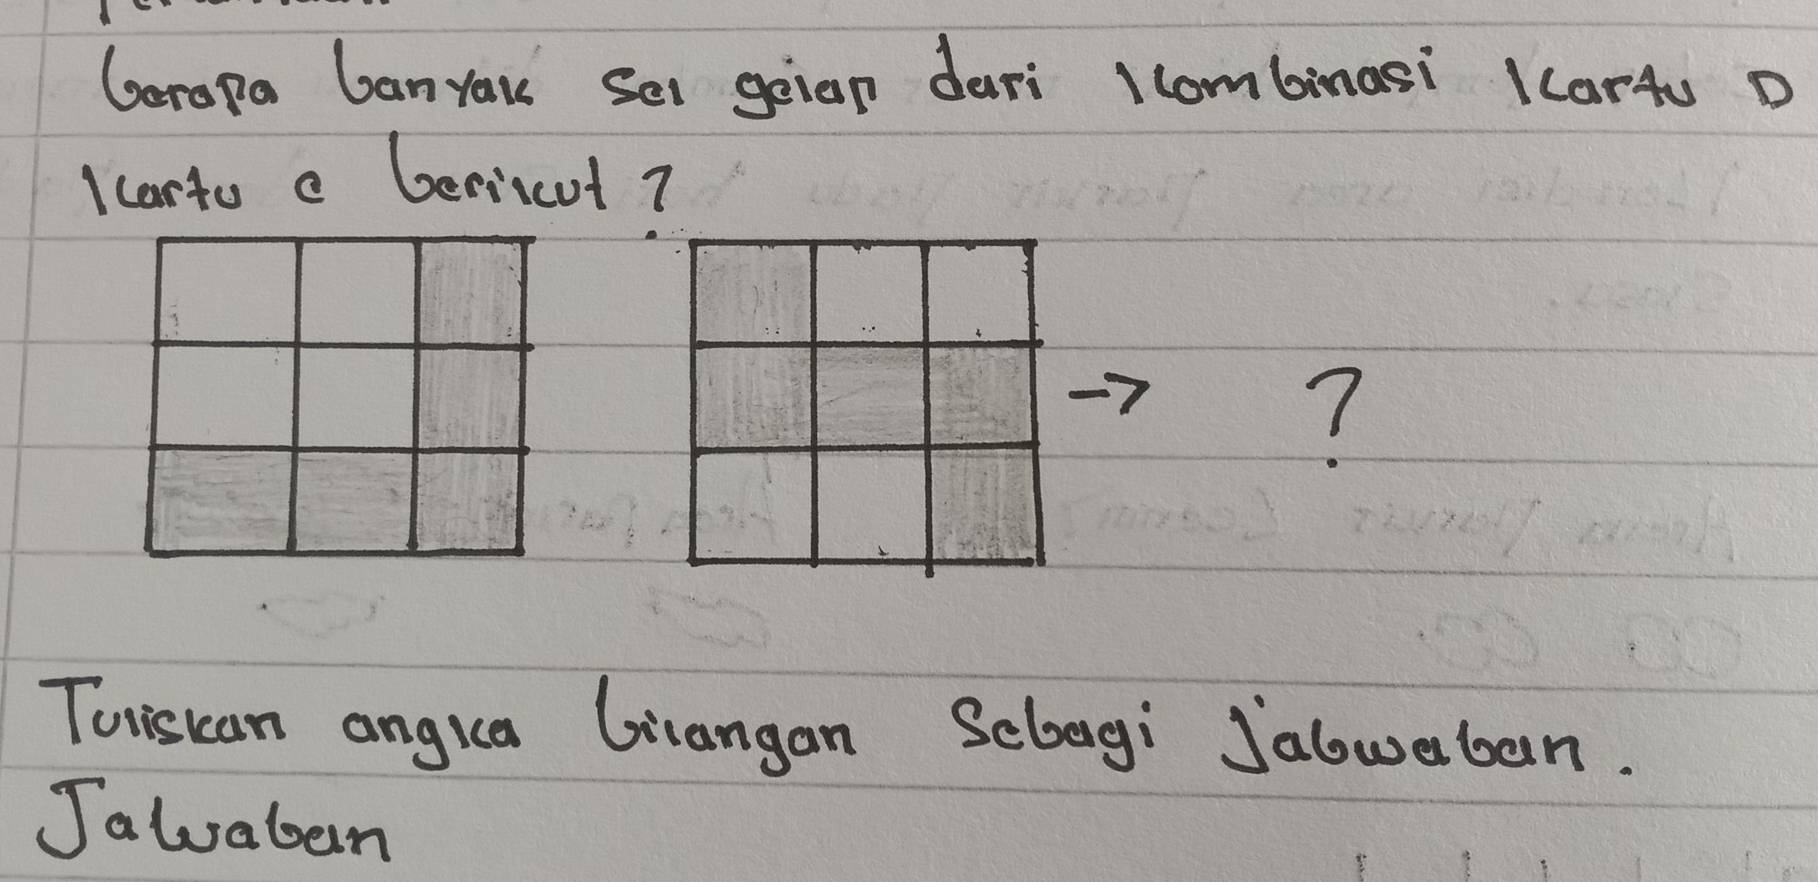 berapa banyak sel gelap dari kombinasi kartu D
kartu e berikut ?
→ ?
Tuliskan angka bilangan Sebagi Jabwaban.
Jawaban